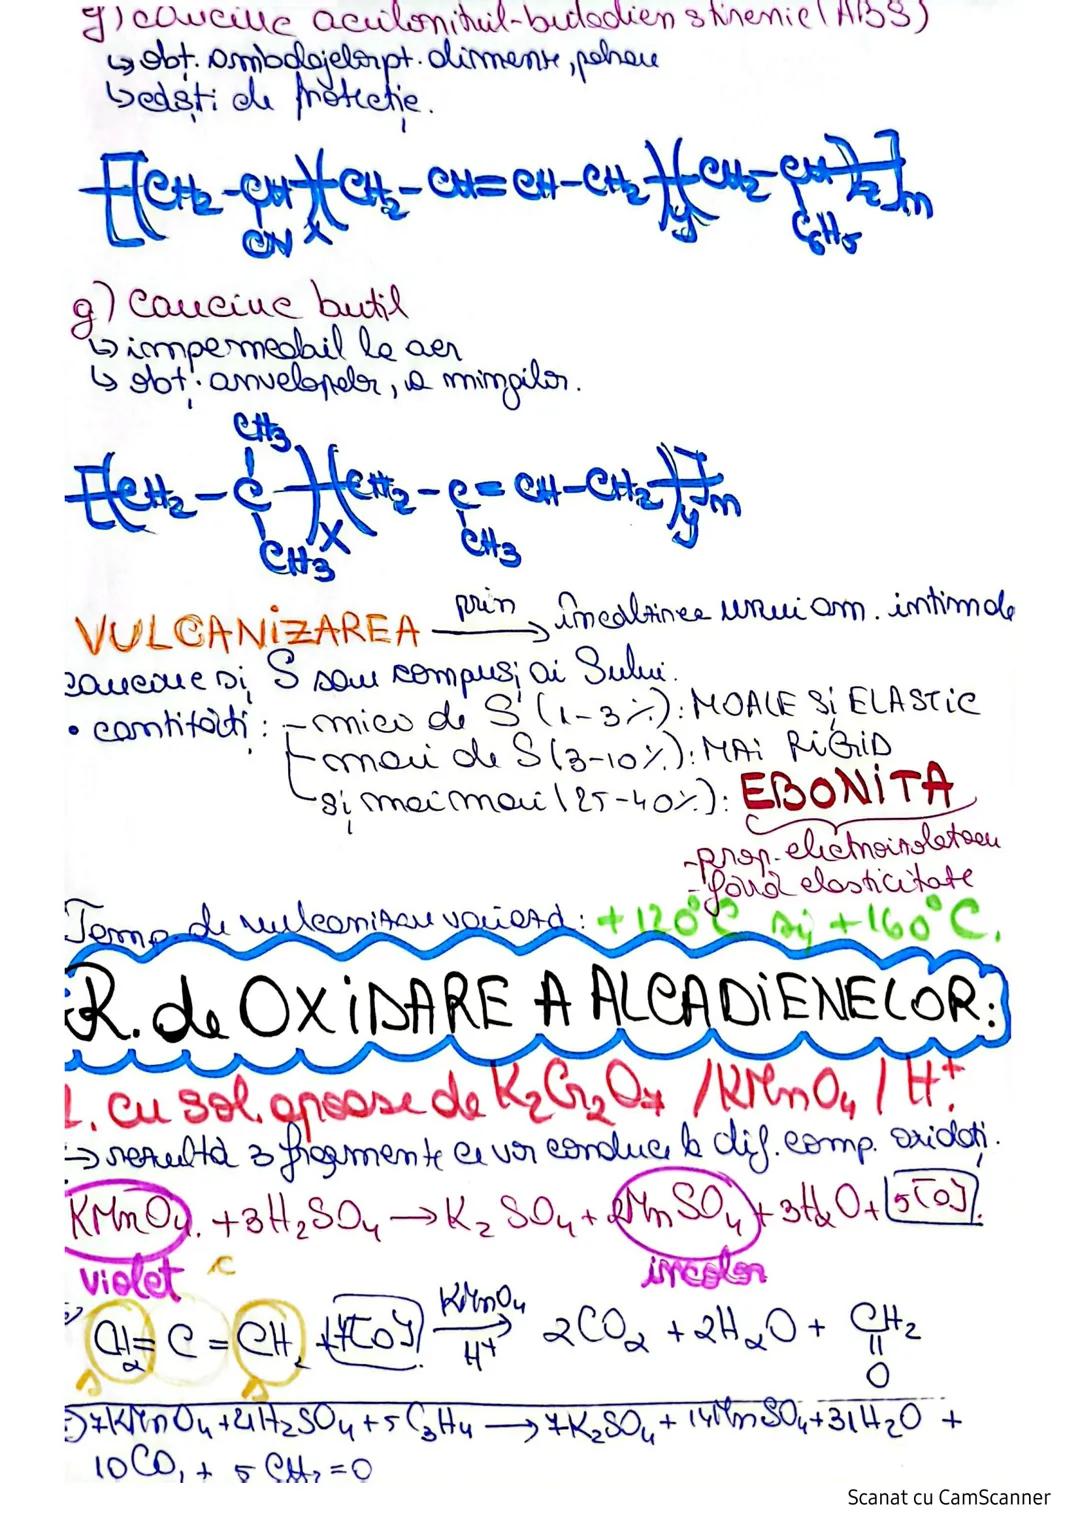 g) cauciuc acrilonitril-butadien stirenic (ABS)
↳ obț. ambalajelor pt. alimente, pahare
↳ căști de protecție.
-[(CH2-CH)x(CH2-CH=CH-CH2)y(CH2-CH)z]n
CN C6H5
g) cauciuc butil
↳ impermeabil la aer
↳ obț. anvelopelor, a mingilor.
CH3
-[(CH2-C)x(CH2-C=CH-CH2)y]n
CH3 CH3
VULCANIZAREA prin → încălzirea unui am. intim de
cauciuc și S sau compuși ai Sului.
• cantități: - mică de S (1-3%): MOALE ȘI ELASTIC
- mari de S (3-10%): MAI RIGID
- și mai mari (25-40%): EBONITA
- prop. electroizolatoare
- fără elasticitate
Temp de vulcanizare variază: +120°C și +160°C.
R. de OXIDARE A ALCADIENELOR:
1. cu sol. apoase de K2Cr2O7 /KMnO4 / H+.
→ rezultă 3 fragmente ce vor conduce la dif. comp. oxidați.
KMnO4 + 3H2SO4 → K2SO4 + 2MnSO4 + 3H2O + 5[O].
violet incolor
CH2 = C = CH2 + 7[O] KMnO4 H+ → 2CO2 + 2H2O + CH2
O
⇒ 7KMnO4 + 21H2SO4 + 5C3H4 → 7K2SO4 + 14MnSO4 + 31H2O +
10CO2 + 5CH2=O
Scanat cu CamScanner